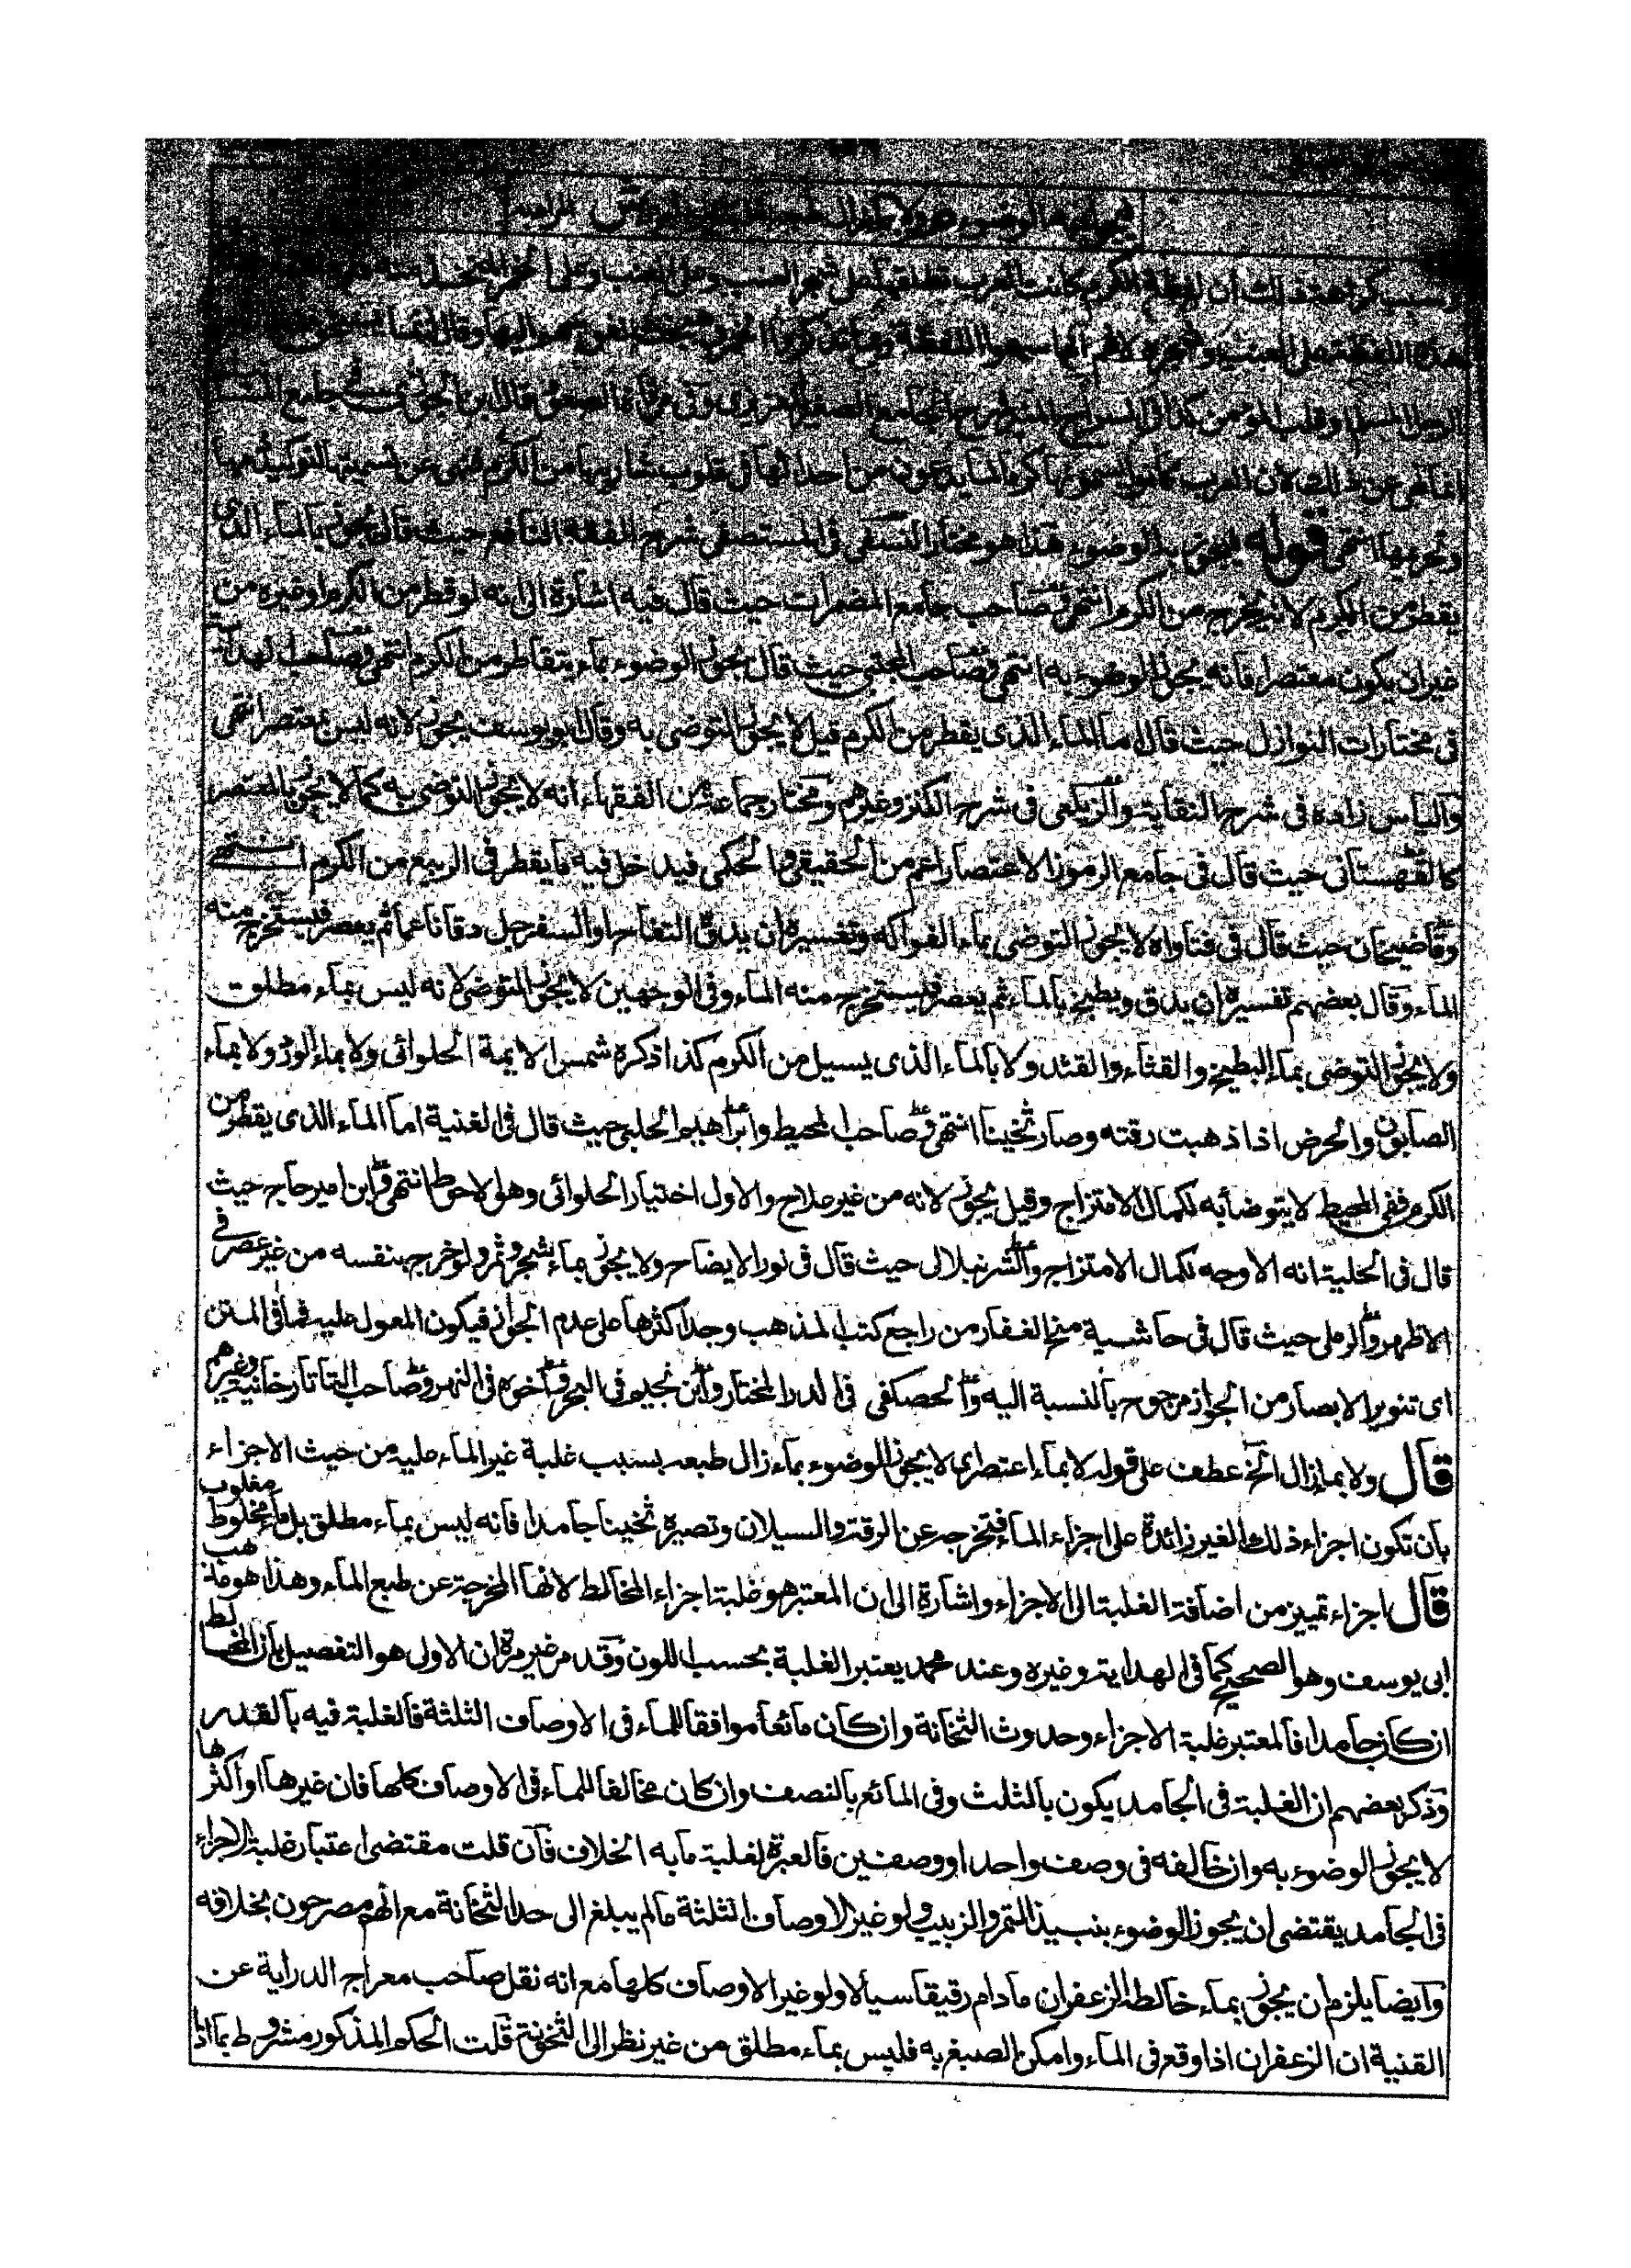 يجوز به الوضوء ولا بماء زال طبعه
وسبب كراهة ذلك ان لفظة الكرم كانت العرب تطلقها على شجر العنب وعلى العنب وعلى الخمر المتخذة منه
هذه اللفظة على العنب وشجره لانهم اذا سمعوا اللفظة ربما تذكروا الخمر وهيجت نفوسهم اليها وقال انما يستحق
الرجل المسلم او قلب المؤمن كذا في السراج المنير شرح الجامع الصغير للعزيزي وفي مرقاة الصعود قال ابن الجوزي في جامع
انما نهى عن ذلك لان العرب كانوا يسمونها كرما لما يدعون من احداثها في قلوب شاربيها من الكرم فنهى عن تسميتها
وتحريمها انتهى قوله فيجوز به الوضوء هذا هو مختار النسفي في المستصفى شرح الفقه النافع حيث قال يجوز بالماء الذي
يقطر من الكرم لانه يخرج من الكرم انتهى وصاحب جامع المضمرات حيث قال فيه اشارة الى انه لو قطر من الكرم او غيره من
غير ان يكون معتصرا فانه يجوز الوضوء به انتهى وصاحب المجتبى حيث قال يجوز الوضوء بماء يتقاطر من الكرم انتهى وصاحب الهداية
في مختارات النوازل حيث قال اما الماء الذي يقطر من الكرم قيل لا يجوز التوضي به وقال ابو يوسف يجوز لانه ليس بمعتصر انتهى
والياس زاده في شرح النقاية والزيلعي في شرح الكنز وغيرهم ومختار جماعة من الفقهاء انه لا يجوز التوضي به كما لا يجوز بالمعتصر
كالقهستاني حيث قال في جامع الرموز الاعتصار اعم من الحقيقي والحكمي فيدخل فيه ما يقطر في الربيع من الكرم انتهى
وقاضيخان حيث قال في فتاواه لا يجوز التوضي بماء الفواكه وتفسيره ان يدق التفاح او السفرجل دقا ناعما ثم يعصر فيستخرج منه
الماء وقال بعضهم تفسيره ان يدق ويطبخ بالماء ثم يعصر فيستخرج منه الماء وفي الوجهين لا يجوز التوضي لانه ليس بماء مطلق
ولا يجوز التوضي بماء البطيخ والقثاء والقثد ولا بالماء الذي يسيل من الكروم كذا ذكره شمس الايمة الحلوائي ولا بماء الورد ولا بماء
الصابون والحرض اذا ذهبت رقته وصار ثخينا انتهى وصاحب المحيط وابراهيم الحلبي حيث قال في الغنية اما الماء الذي يقطر من
الكرم ففي المحيط لا يتوضأ به لكمال الامتزاج وقيل يجوز لانه من غير علاج والاول اختيار الحلوائي وهو الاحوط انتهى وابن امير حاج حيث
قال في الحلية انه الاوجه لكمال الامتزاج والشرنبلالي حيث قال في نور الايضاح ولا يجوز بماء شجر وثمر ولو خرج بنفسه من غير عصر في
الاظهر والرملي حيث قال في حاشية منح الغفار من راجع كتب المذهب وجد اكثرها على عدم الجواز فيكون المعول عليه فما في المتن
اى تنوير الابصار من الجواز مرجوح بالنسبة اليه والحصكفي في الدر المختار وابن نجيم في البحر واخوه في النهر وصاحب التاتارخانية وغيرهم
قال ولا بماء زال الخ عطف على قوله لا بماء اعتصر اى لا يجوز الوضوء بماء زال طبعه بسبب غلبة غير الماء عليه من حيث الاجزاء
بان تكون اجزاء ذلك الغير زائدة على اجزاء الماء فتخرجه عن الرقة والسيلان وتصيره ثخينا جامدا فانه ليس بماء مطلق بل ماء مخلوط مغلوب
قال اجزاء تمييز من اضافة الغلبة الى الاجزاء واشارة الى ان المعتبر هو غلبة اجزاء المخالط لانها المخرجة عن طبع الماء وهذا هو مذهب
ابى يوسف وهو الصحيح كما في الهداية وغيره وعند محمد يعتبر الغلبة بحسب اللون وقد مر غير مرة ان الاولى هو التفصيل بان المخالط
ان كان جامدا فالمعتبر غلبة الاجزاء وحدوث الثخانة وان كان مائعا موافقا للماء في الاوصاف الثلثة فالغلبة فيه بالقدر
وذكر بعضهم ان الغلبة في الجامد يكون بالثلث وفي المائع بالنصف وان كان مخالفا للماء في الاوصاف كلها فان غيرها او اكثرها
لا يجوز الوضوء به وان خالفه في وصف واحد او وصفين فالعبرة لغلبة ما به الخلاف فان قلت مقتضى اعتبار غلبة الاجزاء
في الجامد يقتضى ان يجوز الوضوء بنبيذ التمر والزبيب ولو غير الاوصاف الثلثة ما لم يبلغ الى حد الثخانة مع انهم مصرحون بخلافه
وايضا يلزم ان يجوز بماء خالطه الزعفران ما دام رقيقا سيالا ولو غير الاوصاف كلها مع انه نقل صاحب معراج الدراية عن
القنية ان الزعفران اذا وقع في الماء وامكن الصبغ به فليس بماء مطلق من غير نظر الى الثخونة قلت الحكم المذكور مشروط بما اذا